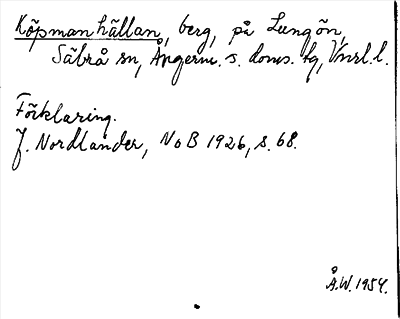 Köpmanhällan, berg, på Lungön,
Säbrå sn, Ångerm. s. doms. tg, Vnrl. l.
Förklaring.
J. Nordlander, NoB 1926, s. 68.
Å.W. 1954.